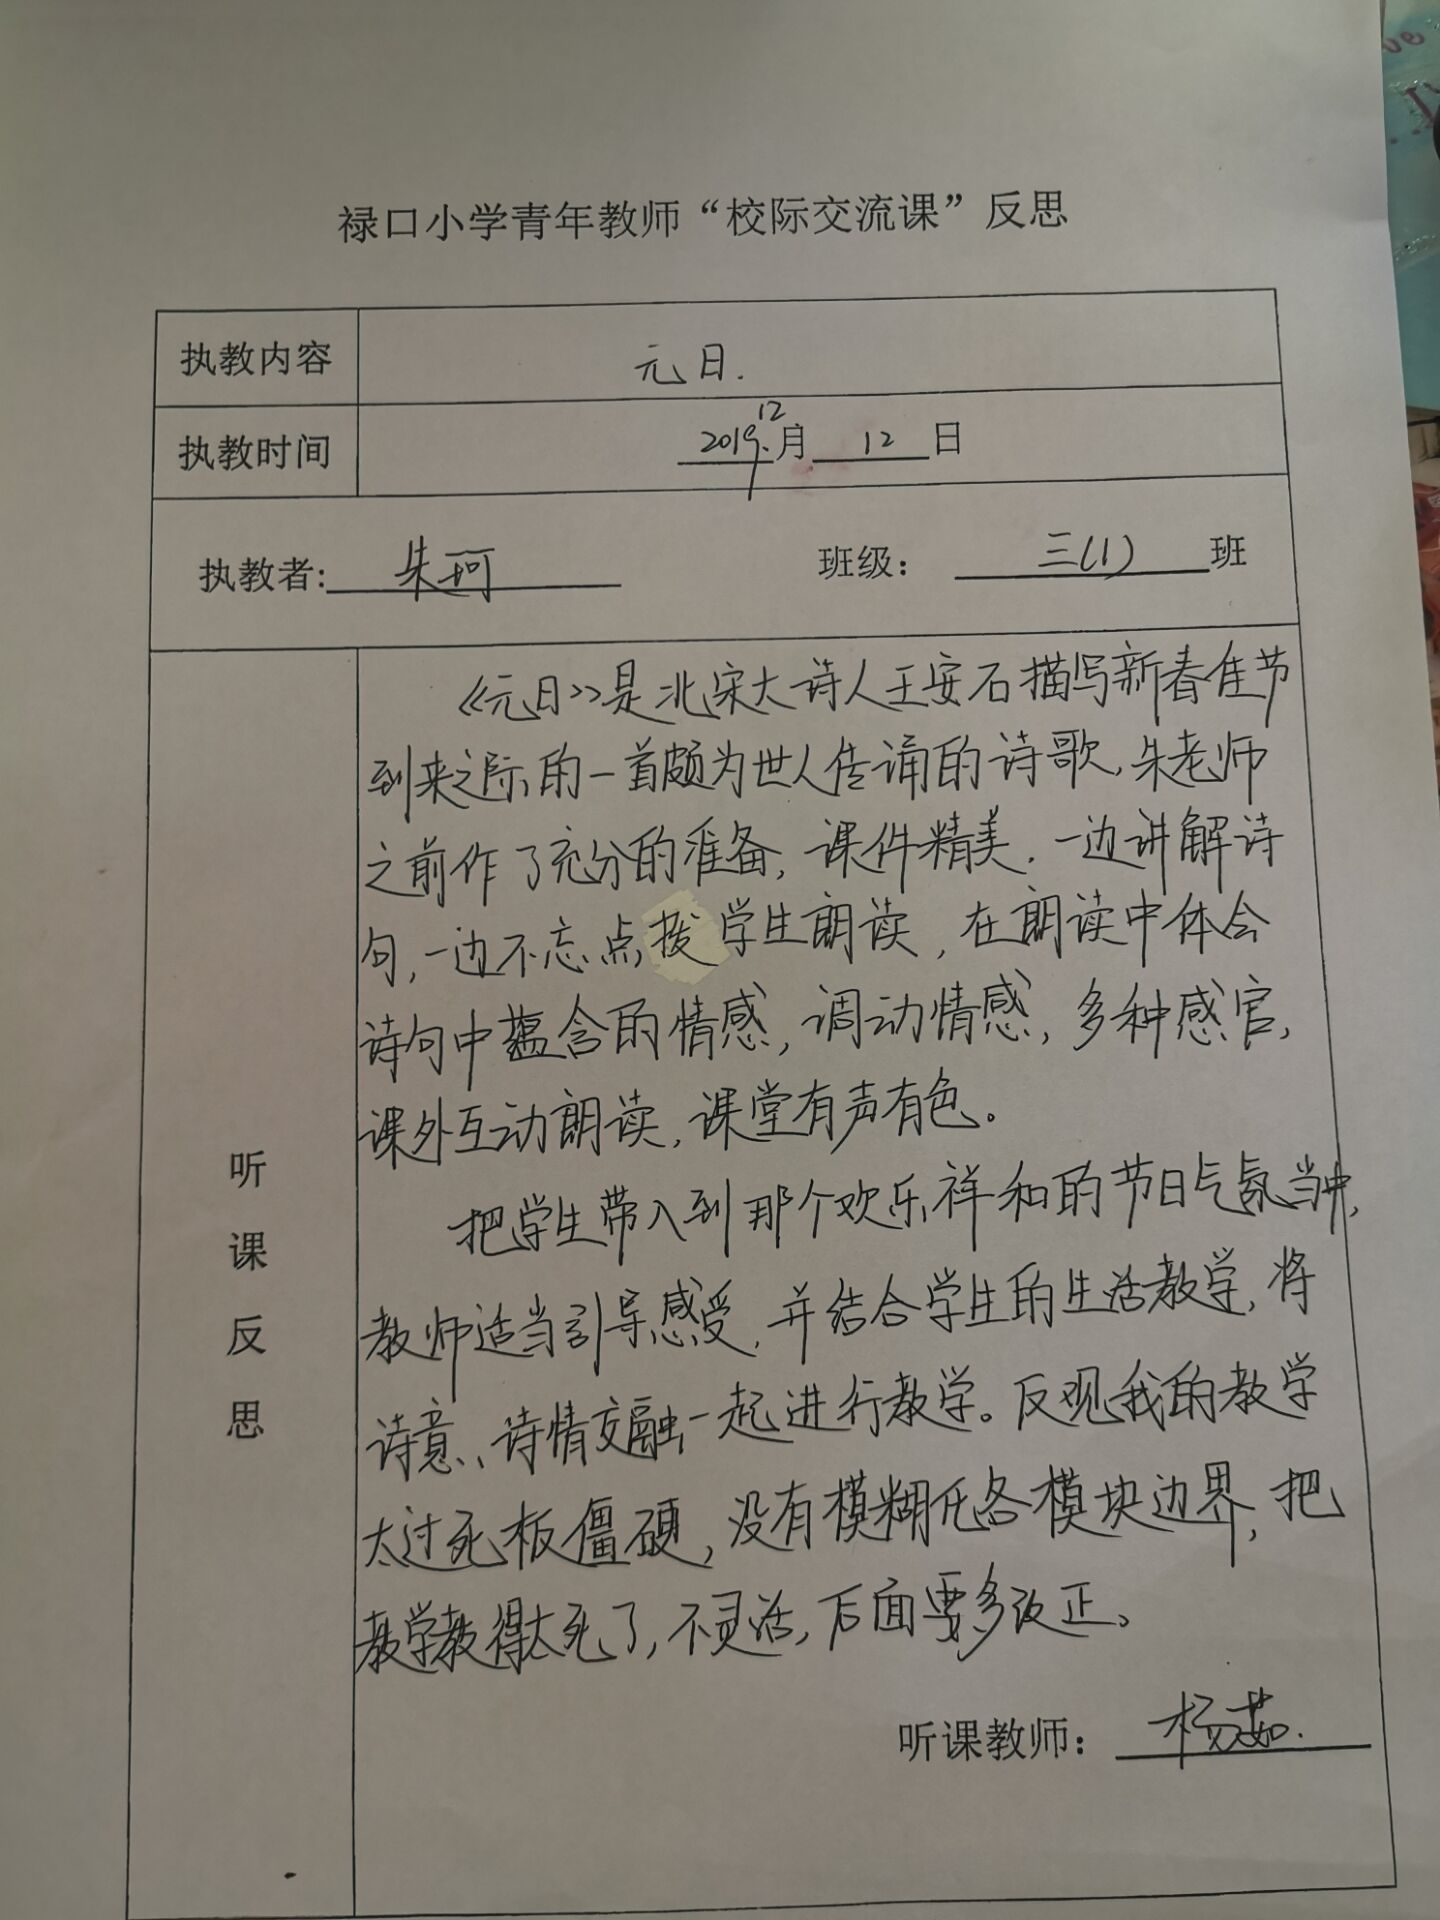 禄口小学青年教师“校际交流课”反思
执教内容 元日.
执教时间 2019.12月12日
执教者: 朱珂 班级： 三(1) 班
听课反思
《元日》是北宋大诗人王安石描写新春佳节
到来之际的一首颇为世人传诵的诗歌,朱老师
之前作了充分的准备,课件精美.一边讲解诗
句,一边不忘点拨学生朗读,在朗读中体会
诗句中蕴含的情感,调动情感,多种感官,
课外互动朗读,课堂有声有色。
把学生带入到那个欢乐祥和的节日气氛当中,
教师适当引导感受,并结合学生的生活教学,将
诗意、诗情交融一起进行教学。反观我的教学
太过死板僵硬,没有模糊化各模块边界,把
教学教得太死了,不灵活,后面要多改正。
听课教师： 杨茹.